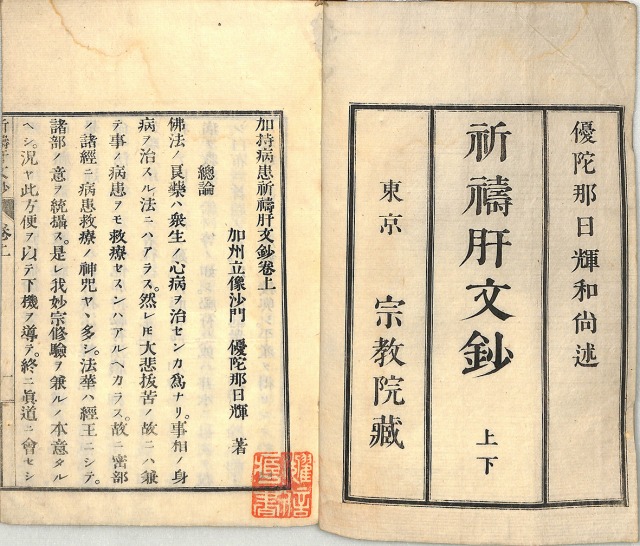 優陀那日輝和尚述
祈禱肝文鈔
上下
東京　宗教院藏
加持病患祈禱肝文鈔卷上
加州立像沙門　優陀那日輝　著
總論
佛法ノ良藥ハ衆生ノ心病ヲ治センカ爲ナリ。事相ノ身
病ヲ治スル法ニハアラス。然レ𪜈大悲拔苦ノ故ニハ兼
テ事ノ病患ヲモ救療セスンハアルヘカラス。故ニ密部
ノ諸經ニ病患救療ノ神咒ヤヽ多シ。法華ハ經王ニシテ。
諸部ノ意ヲ統攝ス。是レ我妙宗修驗ヲ兼ルノ本意タル
ヘシ。況ヤ此方便ヲ以テ下機ヲ導テ。終ニ眞道ニ會セシ
祈禱肝文鈔　卷上　一